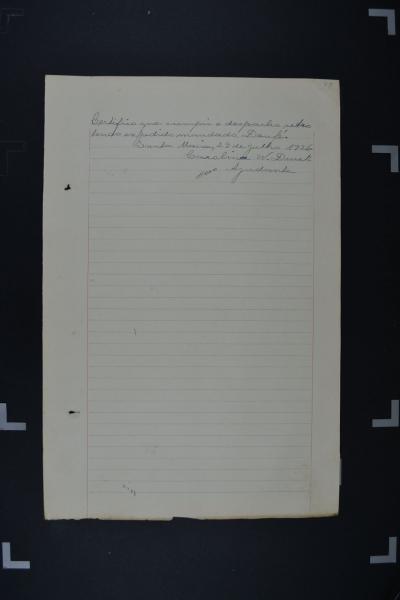 Certifico que cumpri o despacho retro
tendo expedido mandado. Dou fé.
Santa Maria, 22 de julho 1926
Carolina W.
Ajudante